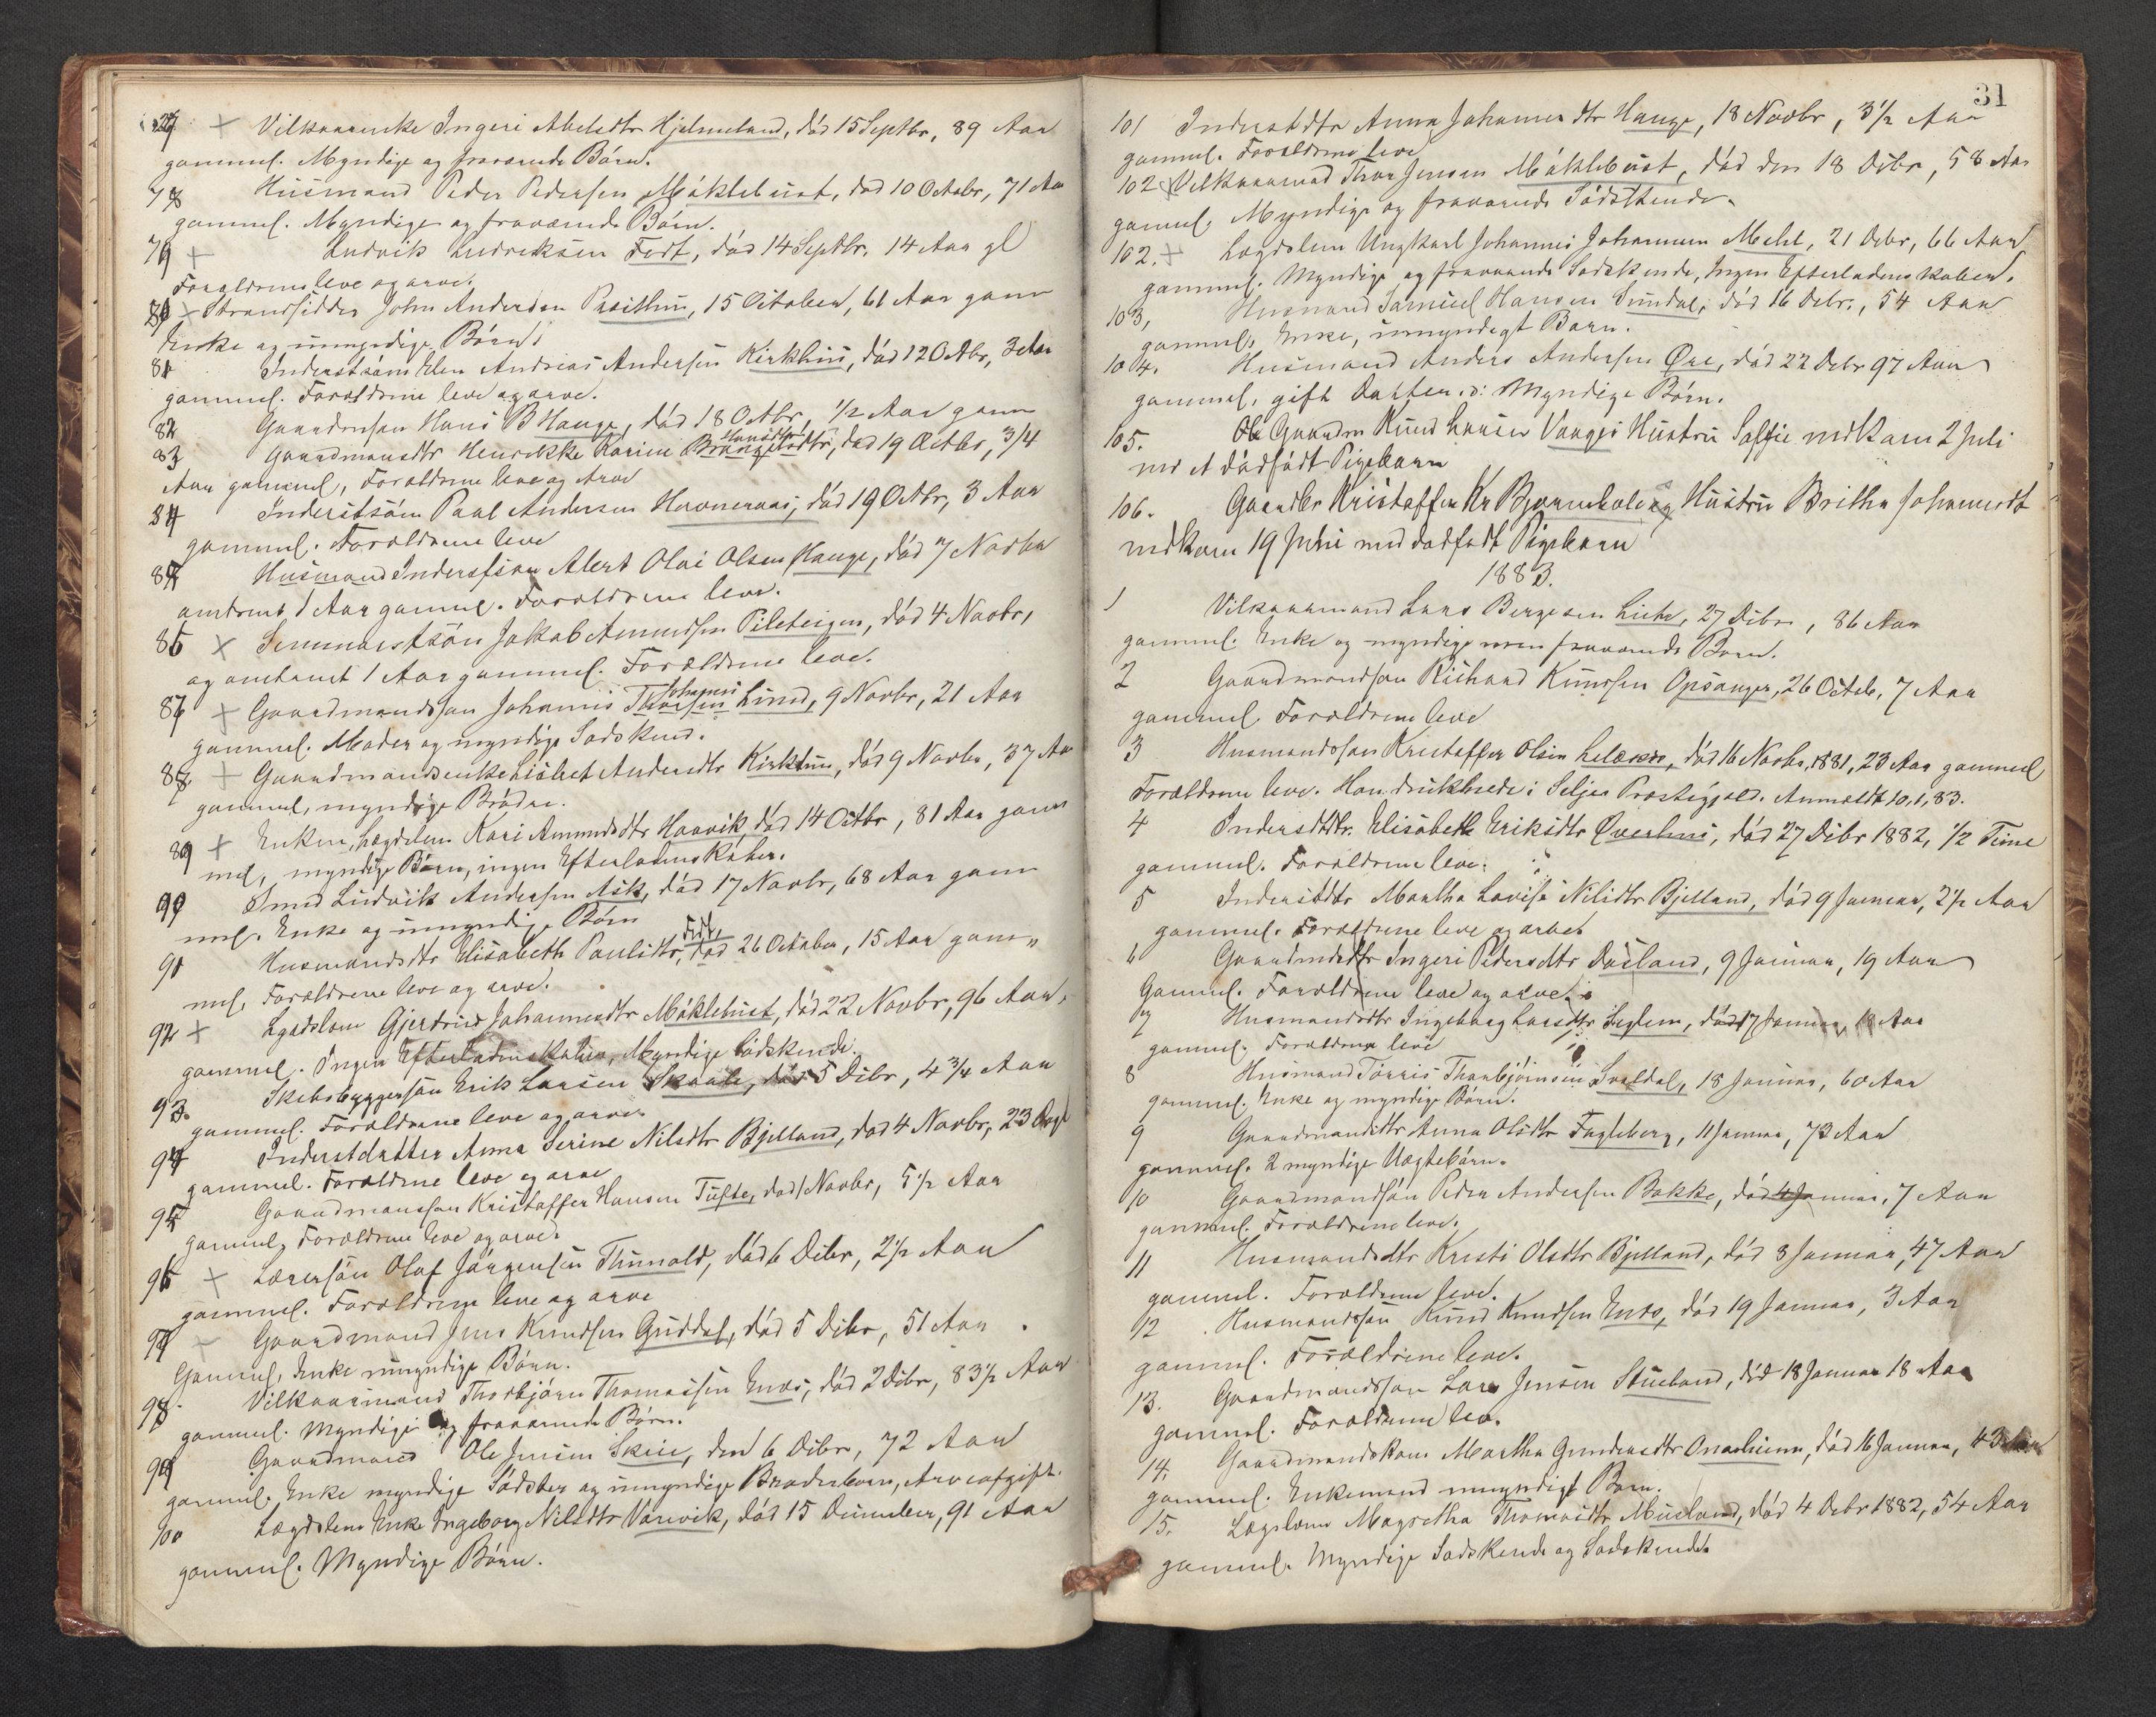 77 + Vilkaarenke Ingeri Abelsdtr Hjelmeland, död 15 Septbr, 89 Aar
gammel. Myndige og fraværende Börn.
78 Husmand Peder Pedersen Mäklebust, död 10 Octobr, 71 Aar
gammel. Myndige og fraværende Börn.
79 + Ludvik Ludviksen Fodt, död 14 Septbr. 14 Aar gl
Forældrene leve og arve.
80 + Strandsidder John Andersen Præsthus, 15 October, 61 Aar gam
Enke og umyndige Börn.
81 Inderstsöns Elen Andreas Andersen Kirkhus, död 12 Octbr, 3 Aar
gammel. Forældrene leve og arve.
82 Gaardmsön Hans B Hauge, död 18 Octbr, 1/2 Aar gam
83 Gaardmansdtr Henrikke Karine Hansdtr, död 19 Octbr, 3/4
Aar gammel, Forældrene leve og Arve
84 Inderstsön Paal Andersen Havneraas, död 19 Octbr, 3 Aar
gammel. Forældrene leve
85 Husmand Inderstsön Alert Olai Olsen Hauge, död 7 Novbr
omtrent 1 Aar gammel. Forældrene leve.
86 + Jakob Amundsen Pileteigen, död 4 Novbr,
og omtrent 1 Aar gammel. Forældrene leve.
87 + Gaardmandssön Johannes Johannes Lund, 9 Novbr, 21 Aar
gammel. Moder og myndige Sødskend.
88 + Gaardmandsenke Lisbet Andersdtr Kirkhus, död 9 Novbr, 37 Aar
gammel, myndige Brödre.
89 + Enken, Lægdslem Kari Amundsdtr Haavik död 14 Octbr, 81 Aar gam
mel, myndige Börn, ingen Efterladenskaber.
90 Smed Ludvik Andersen Ask, död 17 Novbr, 68 Aar gam
mel. Enke og umyndige Börn
91 Husmandsdtr Elisabeth Paulsdtr, Fedt, död 26 October, 15 Aar gam„
mel, Forældrene leve og arve.
92 + Lgdslem Gjertrud Johannesdtr Mäklebust, död 22 Novbr, 96 Aar,
gammel. Ingen Efterladenskaber, Myndige Södskende.
93. Skibsbyggersön Erik Larsen Skaale, död 5 Dcbr, 4 3/4 Aar
gammel. Forældrene leve og arve
94 Inderstdatter Anna Serine Nilsdtr Bjelland, död 4 Novbr, 23 Dage
gammel. Forældrene leve og arve
95 Gaardmanssön Kristoffer Hansen Tufte, död 1 Novbr, 5 1/2 Aar
gammel, Forældrene leve og arve.
96 + Lærersön Olaf Jörgensen Thunold, död 6 Dcbr, 2 1/2 Aar
gammel. Forældrene leve og arve
97 + Gaardmand Jens Knudsen Guddal, död 5 Dcbr, 51 Aar
Gammel, Enke umyndige Börn.
98. Vilkaarmand Thorbjörn Thomassen Enæs, död 2 Dcbr, 83 1/2 Aar
gammel. Myndige og fraværende Börn.
99 Gaardmand Ole Jensen Skeie, den 6 Dcbr, 72 Aar
gammel. Enke myndige Södster og umyndige Broderbarn, Arveafgift.
100 Lægdslem Enke Ingeborg Nilsdtr Varvik, död 15 December, 91 Aar
gammel. Myndige Börn.
31
101 Inderstdtr Anna Johannesdtr Hauge, 18 Novbr, 3 1/2 Aar
gammel. Forældrene leve
102 + Vilkaarmand Thor Jensen Mäklebust, död den 18 Dcbr, 58 Aar
gammel, Myndige og fraværende Södskende.
102. + Lægdslem Ungkarl Johannes Johannesen Mehl, 21 Dcbr, 66 Aar
gammel. Myndige og fraværende Sødskende, Ingen Efterladenskaber.
103, Husmand Samuel Hansen Sundal, död 16 Dcbr., 54 Aar
gammel, Enke, umyndigt Barn.
104. Husmand Anders Andersen Øre, död 22 Dcbr 97 Aar
gammel, gift Datter. o: Myndige Börn.
105. Gaardm Knud Larsen Vanges Hustru Soffie nedkom 2 Juli
med et dödfödt Pigebarn
106. Gaardbr Kristoffer Kr Bjørnebole's Hustru Britha Johannesdt
nedkom 19 Juni med dødfødt Pigebarn
1883.
1 Vilkaarmand Lars Bergesen Liche, 27 Dcbr, 86 Aar
gammel. Enke og myndige men fraværende Børn.
2 Gaardmandssön Richard Knudsen Opsanger, 26 Octob, 7 Aar
gammel. Forældrene leve
3 Husmandssön Kristoffer Olsen, död 16 Novbr. 1881, 23 Aar gammel
Forældrene leve. Han druknede i Seljes Præstegjeld. Anmeldt 10,1,83.
4 Inderstdtr. Elisabeth Eriksdtr Øverhus, död 27 Dcbr 1882, 1/2 Time
gammel. Forældrene leve.
5 Inderstdtr Martha Lovise Nilsdtr Bjelland, död 9 Januar, 2 1/2 Aar
gammel. Forældrene leve og arver
6 Gaardmdtr Ingeri Pedersdtr Døsland, 9 Januar, 19 Aar
Gammel. Forældrene leve og arve.
7 Husmandsdtr Ingeborg Larsdtr Seglem, död 17 Januar, Aar
gammel. Forældrene leve
8 Husmand Torris Thorbjörnsen Svoldal, 18 Januar, 60 Aar
gammel. Enke og myndige Børn.
9 Gaardmandsdtr Anna Olsdtr Fugleberg, 11 Januar, 73 Aar
gammel. 2 myndige Uægtebörn.
10 Gaardmandssön Peder Andersen Bakke, död 4 Januar, 7 Aar
gammel. Forældrene leve.
11 Husmandsdtr Kristi Olsdtr Bjelland, död 8 Januar, 47 Aar
gammel. Forældrene leve.
12 Husmandssön Knud Knudsen Enæs, död 19 Januar, 3 Aar
gammel. Forældrene leve.
13. Gaardmandssön Lars Jensen Stueland, död 18 Januar 18 Aar
gammel. Forældrene lev.
14. Gaardmandskone Martha Gundersdtr Onarheim, död 16 Januar, 43 Aar
gammel. Enkemand umyndigt Barn.
15. Lægslem Magretha Thomasdtr Musland, död 4 Dcbr 1882, 54 Aar
gammel. Myndige Sødskende og Sødskende